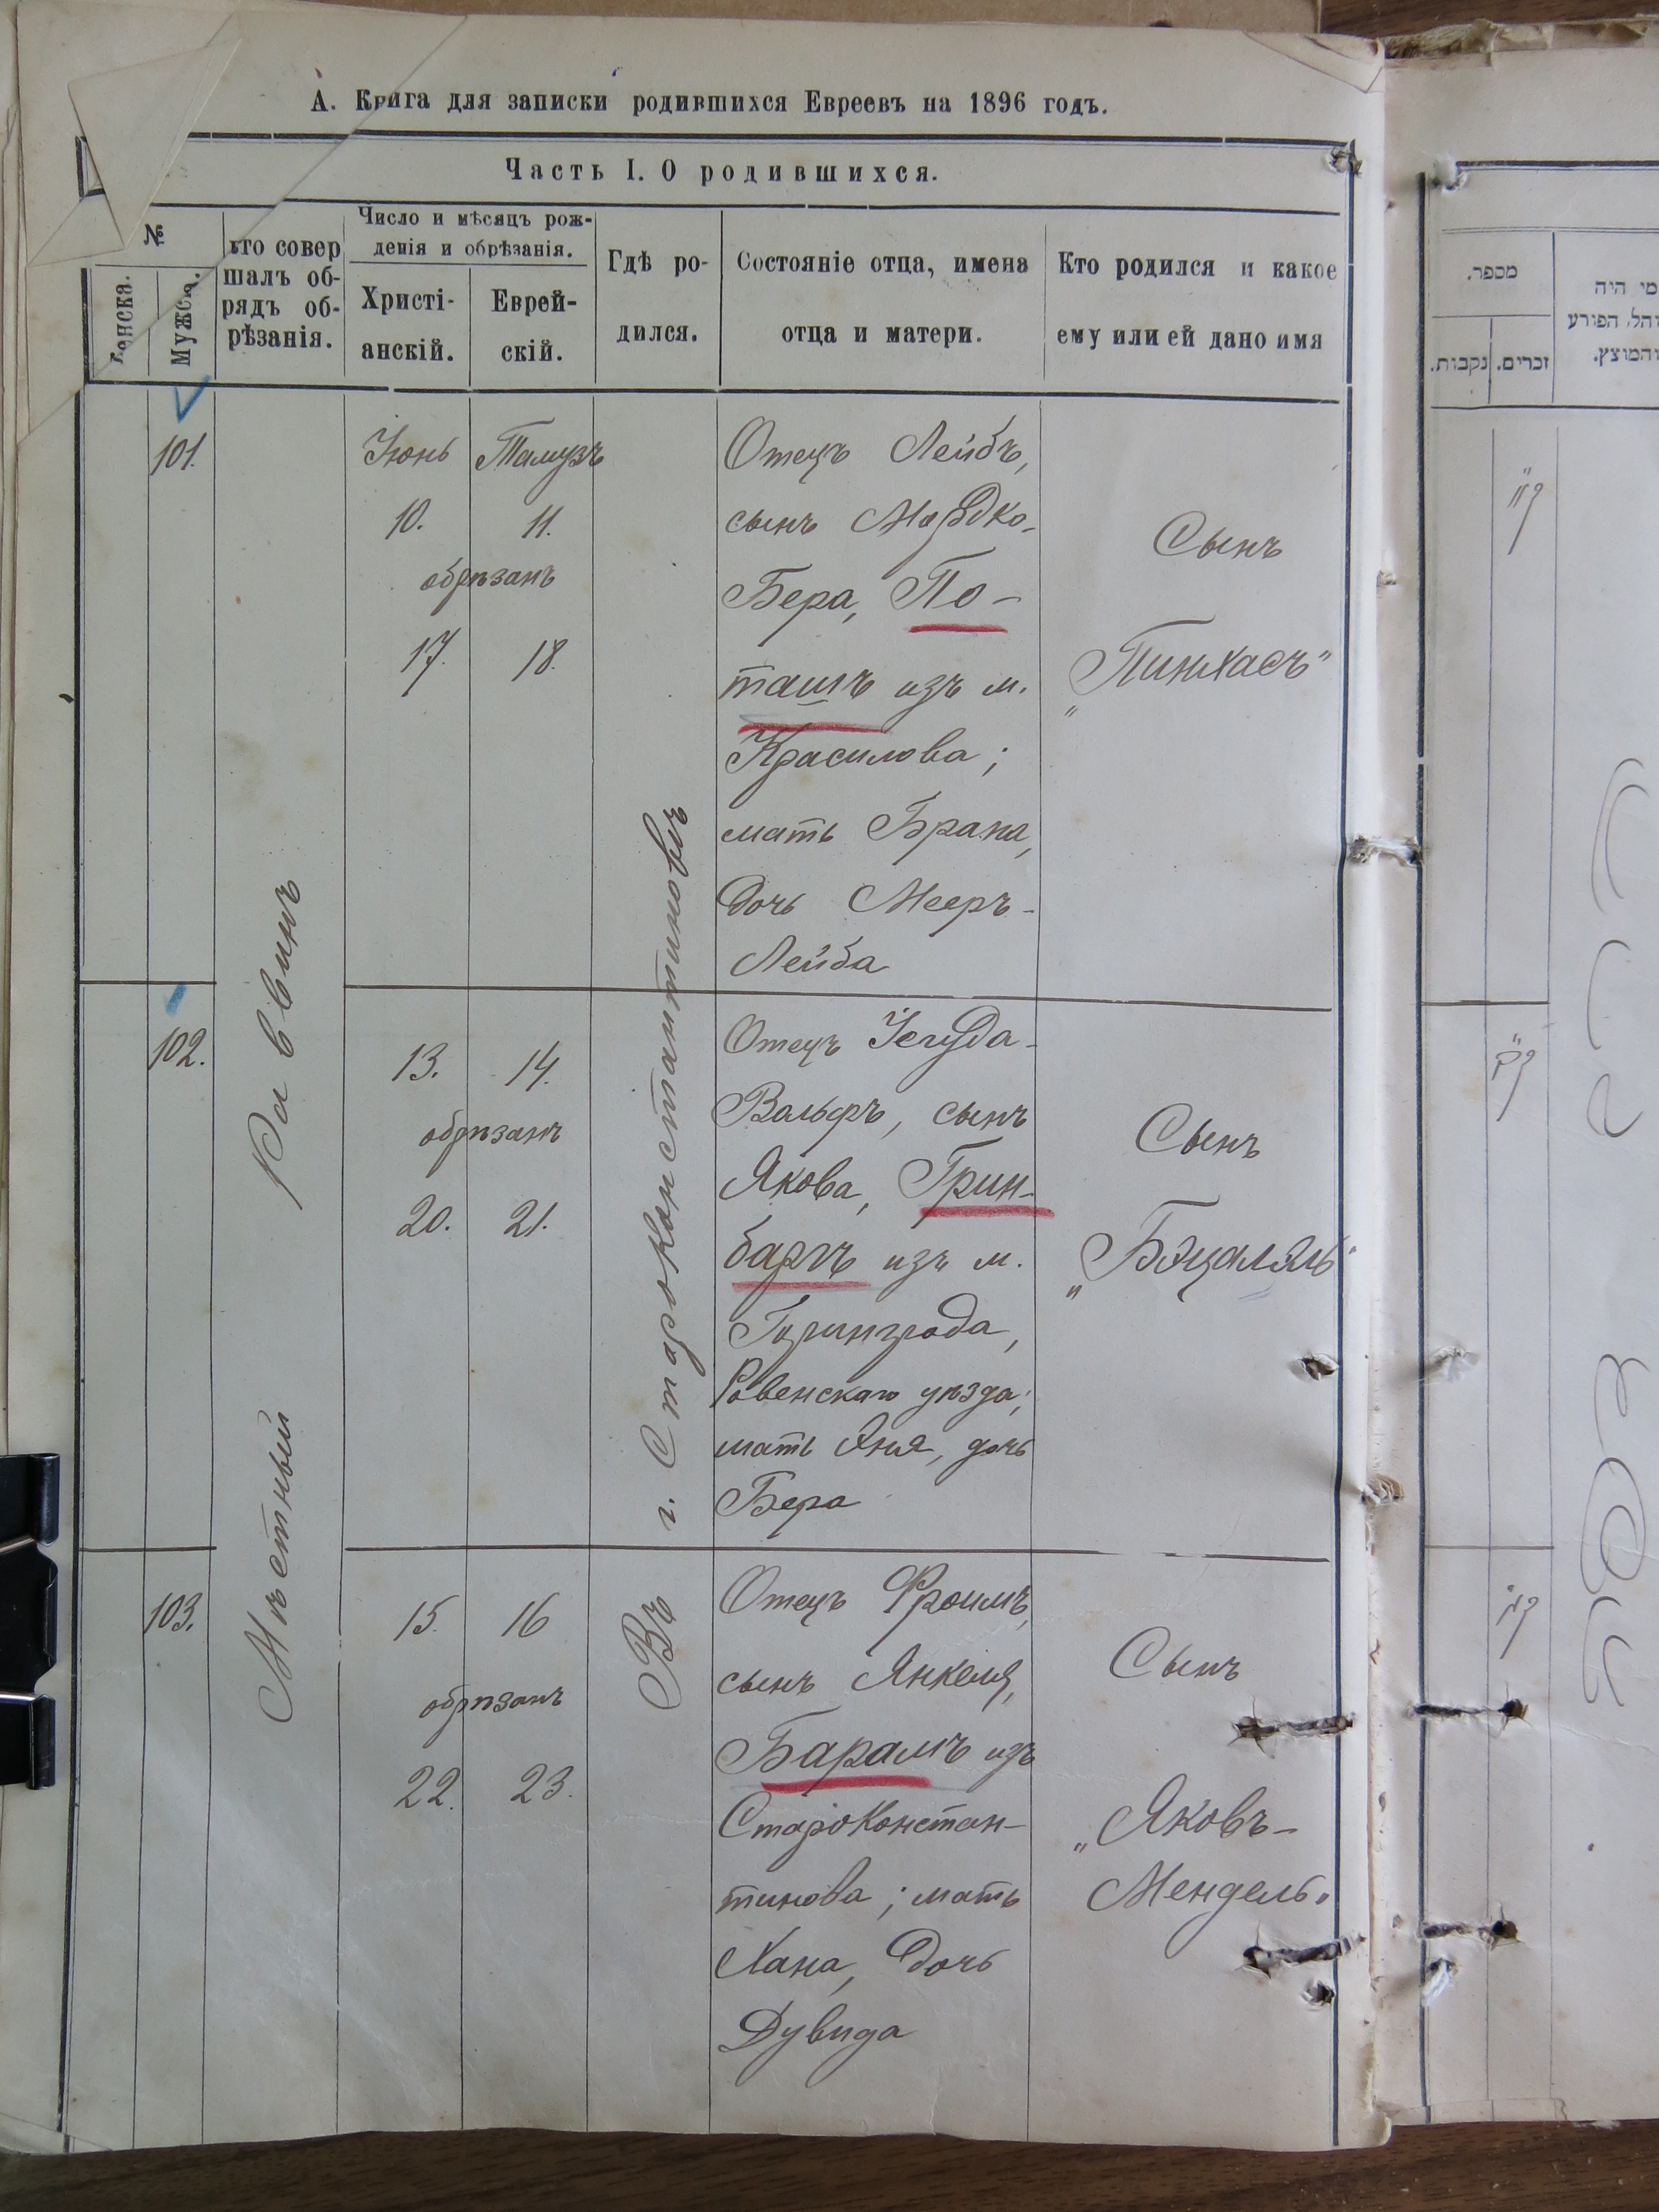 А. Книга для записки родившихся Евреевъ на 1896 годъ.
Часть I. О родившихся.
№
Мужск.
кто совер
шалъ об-
рядъ об-
рѣзанія.
Число и мѣсяцъ рож-
денія и обрѣзанія.
Христі-
анскій.
Еврей-
скій.
Гдѣ ро-
дился.
Состояніе отца, имена
отца и матери.
Кто родился и какое
ему или ей дано имя
Мѣстный Раввинъ
Въ г. Староконстантиновѣ
101.
Іюнь Тамузъ
10. 11.
обрѣзанъ
17. 18.
Отецъ Лейбъ,
сынъ Мордко-
Бера, По-
ташъ изъ м.
Красилова;
мать Брана,
дочь Мееръ-
Лейба
Сынъ
„Пинхасъ"
102.
13. 14.
обрѣзанъ
20. 21.
Отецъ Іегуда-
Вольфъ, сынъ
Якова, Грин-
баргъ изъ м.
Горинграда,
Ровенскаго уѣзда;
мать Эня, дочь
Бера
Сынъ
„Бэцалэль"
103.
15. 16
обрѣзанъ
22. 23.
Отецъ Фроимъ,
сынъ Янкеля,
Барамъ изъ
Староконстан-
тинова; мать
Хана, дочь
Дувида
Сынъ
„Яковъ-
Мендель"
מספר.
זכרים.
נקבות.
מי היה
והמוצץ.
קא
קב
קג